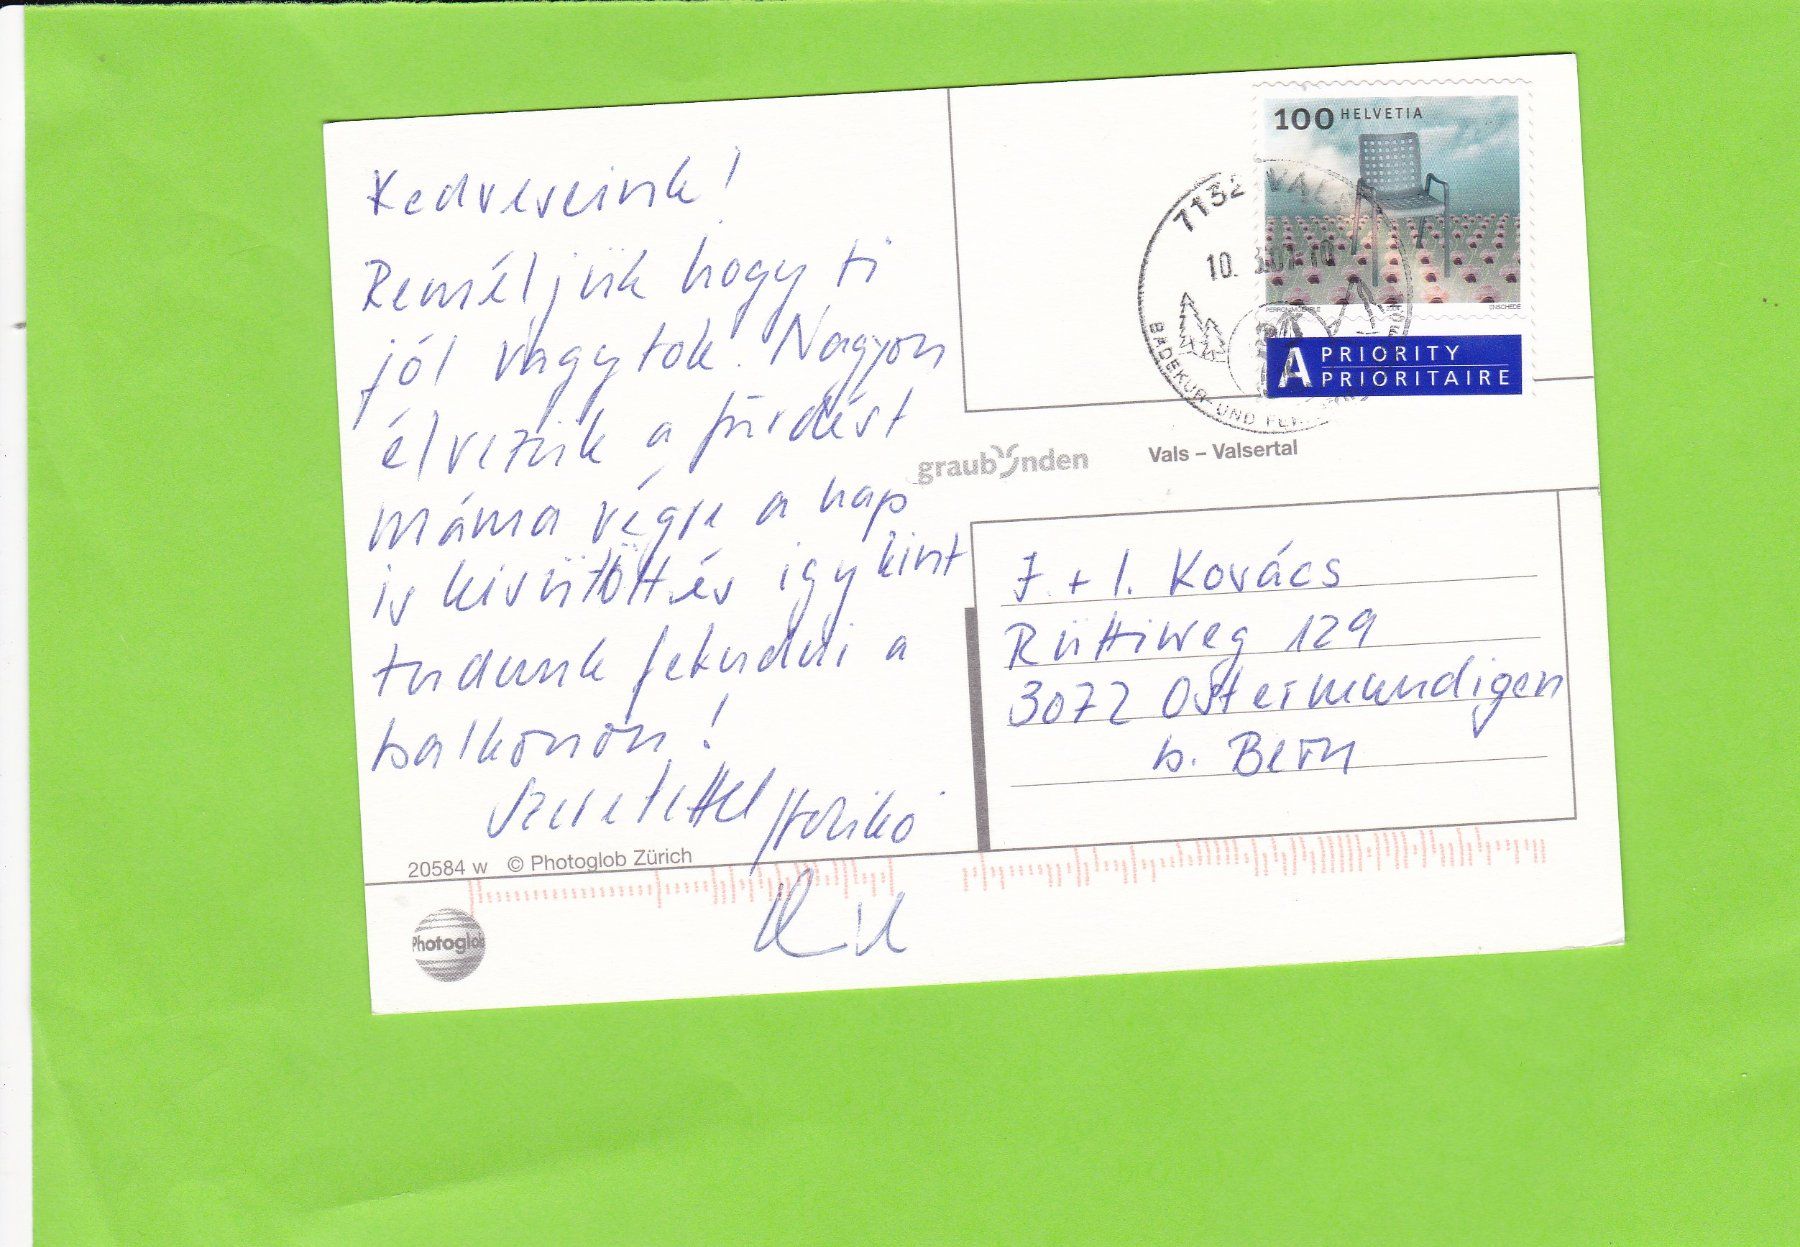 Kedveseink!
Reméljük hogy ti
jól vagytok. Nagyon
élvezük a fürdést
máma végre a nap
is kisütött és igy kint
tudunk feküdni a
balkonon!
Szeretettel Ildikó
20584 w © Photoglob Zürich
Photoglob
100 HELVETIA
7132 VALS
10.
BADEKUR- UND
A PRIORITY
PRIORITAIRE
graubünden
Vals – Valsertal
J. + I. Kovács
Rüttiweg 129
3072 Ostermundigen
b. Bern